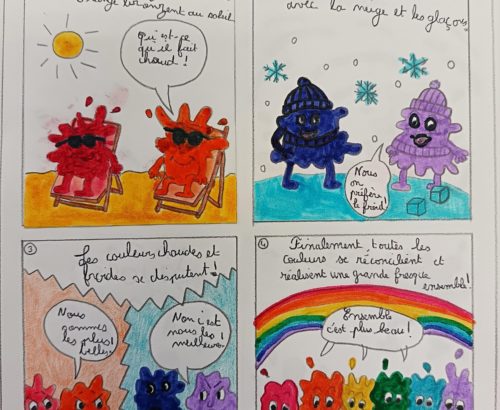 bronzent au soleil
Qu'est-ce
qu'il fait
chaud !
avec la neige et les glaçons.
Nous
on
préfère
le froid!
3
Les couleurs chaudes et
froides se disputent !
Nous
sommes
les plus
belles
Non c'est
nous les
meilleures
4
Finalement, toutes les
couleurs se réconcilient et
réalisent une grande fresque
ensemble!
Ensemble
c'est plus beau !